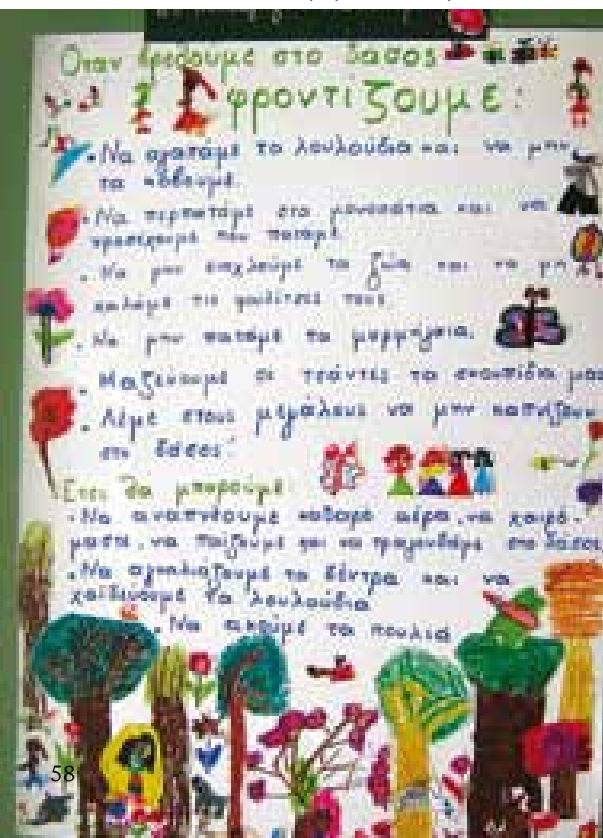 Όταν βρεθούμε στο δάσος
φροντίζουμε:
• Να αγαπάμε τα λουλούδια και να μην
τα κόβουμε.
• Να περπατάμε στα μονοπάτια και να
προσέχουμε που πατάμε
• Να μην ενοχλούμε τα ζώα και να μη
χαλάμε τις φωλίτσες τους
• Να μην πατάμε τα μυρμήγκια.
• Μαζεύουμε σε τσάντες τα σκουπίδια μας
• Λέμε στους μεγάλους να μην καπνίζουν
στο δάσος!
Έτσι θα μπορούμε
• Να αναπνέουμε καθαρό αέρα, να χαιρό-
μαστε, να παίζουμε και να τραγουδάμε στο δάσος
• Να αγκαλιάζουμε τα δέντρα και να
χαϊδεύουμε τα λουλούδια
• Να ακούμε τα πουλιά
58